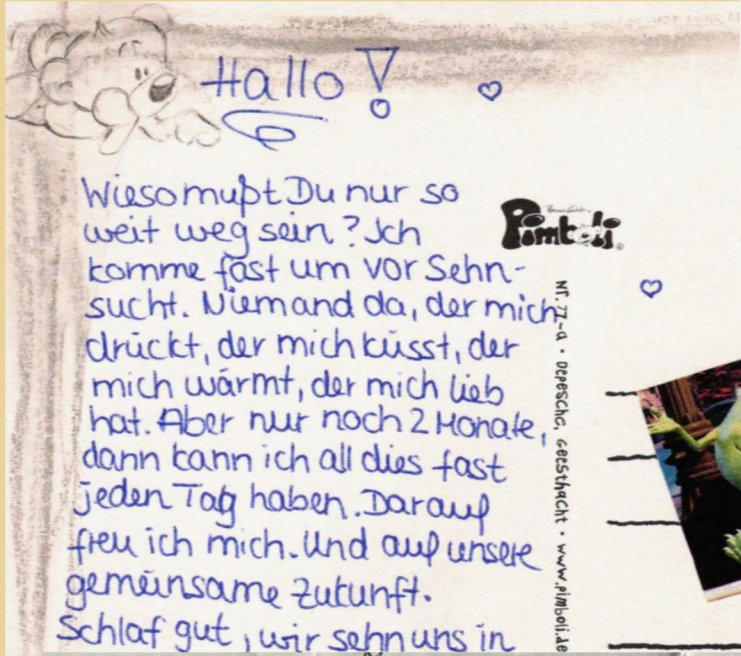 Hallo!
Wieso mußt Du nur so
weit weg sein? Ich
komme fast um vor Sehn-
sucht. Niemand da, der mich
drückt, der mich küsst, der
mich wärmt, der mich lieb
hat. Aber nur noch 2 Monate,
dann kann ich all dies fast
jeden Tag haben. Darauf
freu ich mich. Und auf unsere
gemeinsame Zukunft.
Schlaf gut, wir sehn uns in
Pimboli
Nr. 77-a • Depesche, Geesthacht • www.pimboli.de